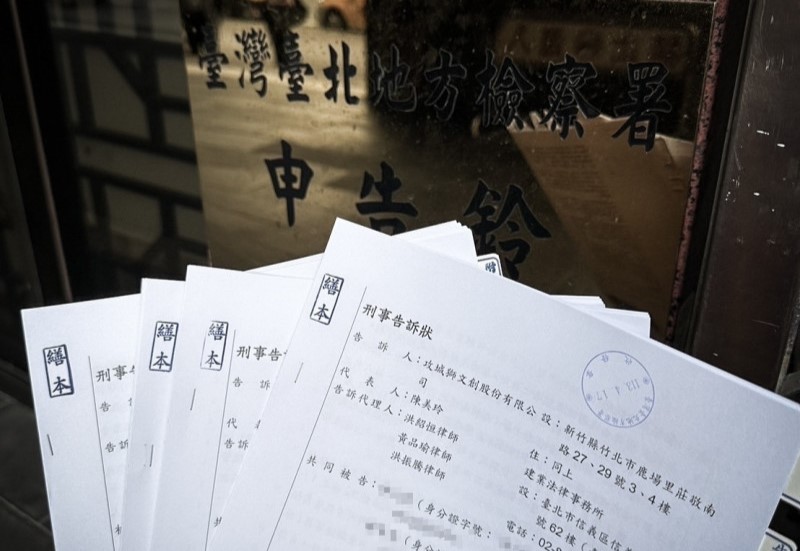 臺灣臺北地方檢察署
申告鈴
繕本
繕本
繕本
繕本
刑事
告
刑事告
告訴
代
告訴
刑事告訴狀
告訴人：攻城獅文創股份有限公司
設：新竹縣竹北市鹿場里莊敬南路27、29號3、4樓
代表人：陳美玲
住：同上
告訴代理人：洪紹恒律師
黃品瑜律師
洪振騰律師
建業法律事務所
設：臺北市信義區信
號62樓（
電話：02-8
共同被告：
（身分證字號：
（身分
113.4.17